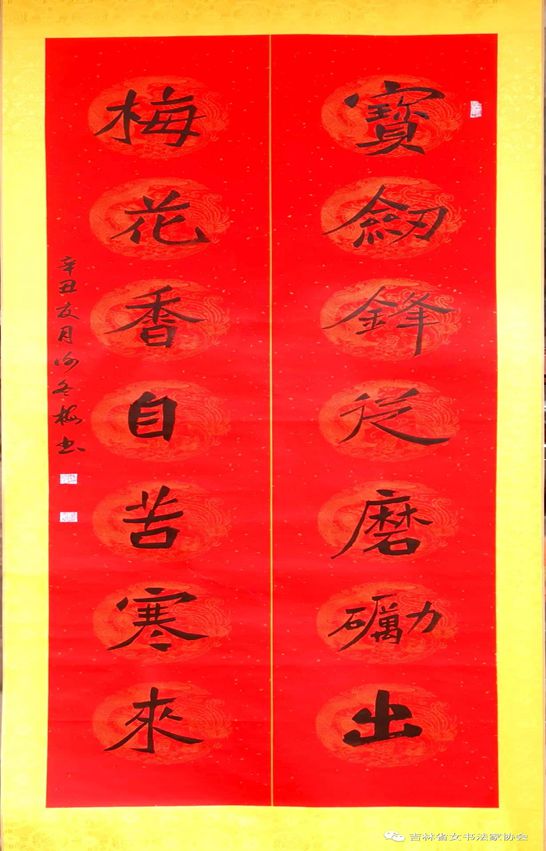 寶劒鋒從磨礪出
梅花香自苦寒來
辛丑月冬梅书
吉林省女书法家协会